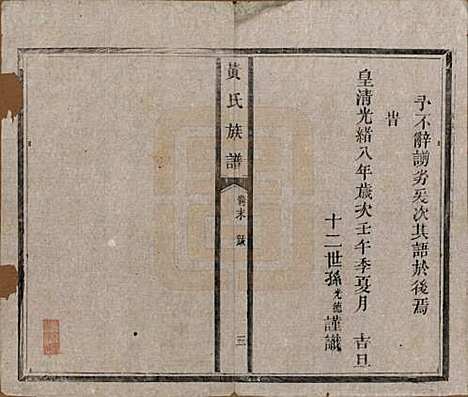 予不辭譾劣爰次其語於後焉
旹
皇清光緒八年歲次壬午季夏月 吉旦
十二世孫光德謹識
黃氏族譜
末
三